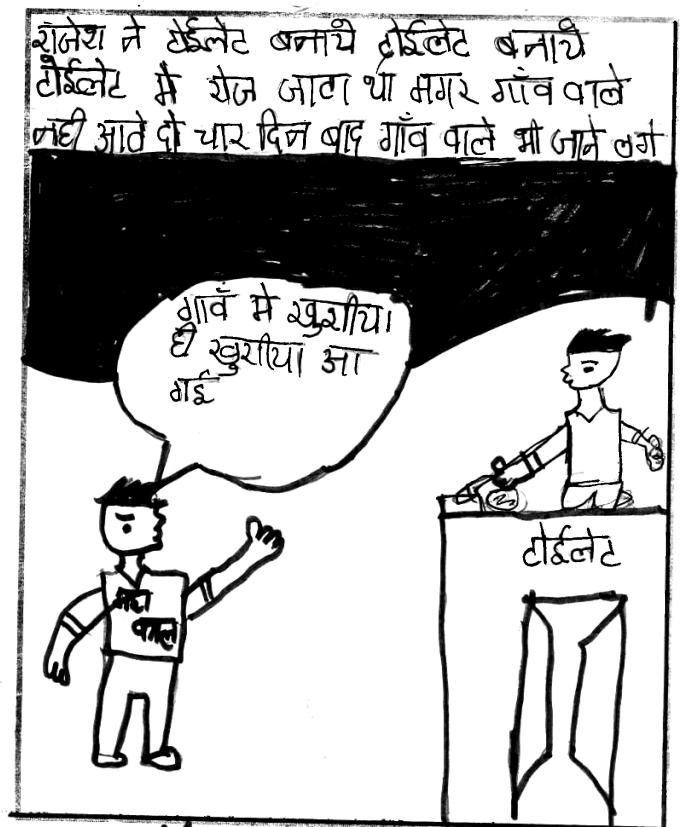 राजेश ने टोईलेट बनाये टोईलेट बनाये
टोईलेट मे रोज जाता था मगर गाँव वाले
नही आते दो चार दिन बाद गाँव वाले भी जाने लगे
गावँ मे खुसीया
ही खुसीया आ
गई
महा
काल
टोईलेट